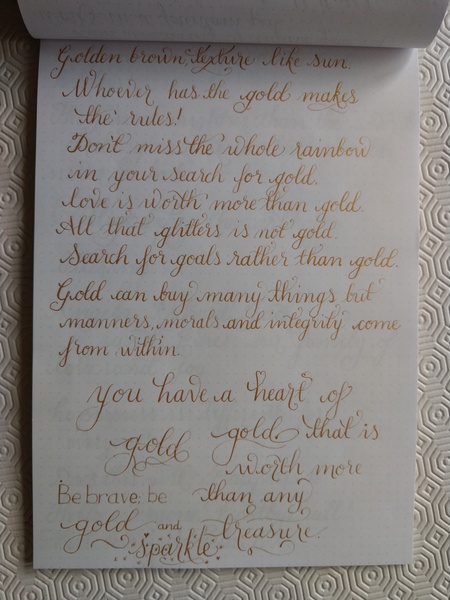 Golden brown texture like sun.
Whoever has the gold makes
the rules!
Don't miss the whole rainbow
in your search for gold.
Love is worth more than gold.
All that glitters is not gold.
Search for goals rather than gold.
Gold can buy many things but
manners, morals and integrity come
from within.
you have a heart of
gold gold that is
worth more
Be brave; be than any
gold and treasure.
sparkle